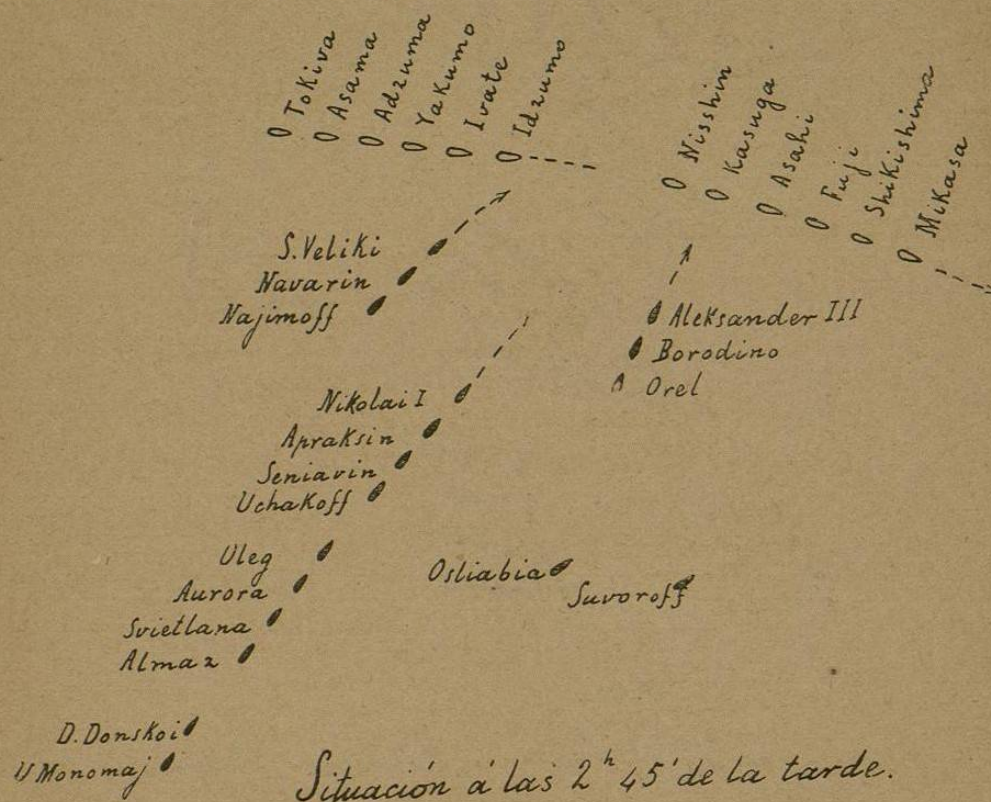 Tokiva
Asama
Adzuma
Yakumo
Ivate
Idzumo
Nisshin
Kasuga
Asahi
Fuji
Shikishima
Mikasa
S. Veliki
Navarin
Najimoff
Aleksander III
Borodino
Orel
Nikolai I
Apraksin
Seniavin
Uchakoff
Oleg
Aurora
Svietlana
Almaz
Osliabia
Suvoroff
D. Donskoi
V Monomaj
Situación á las 2 h 45' de la tarde.